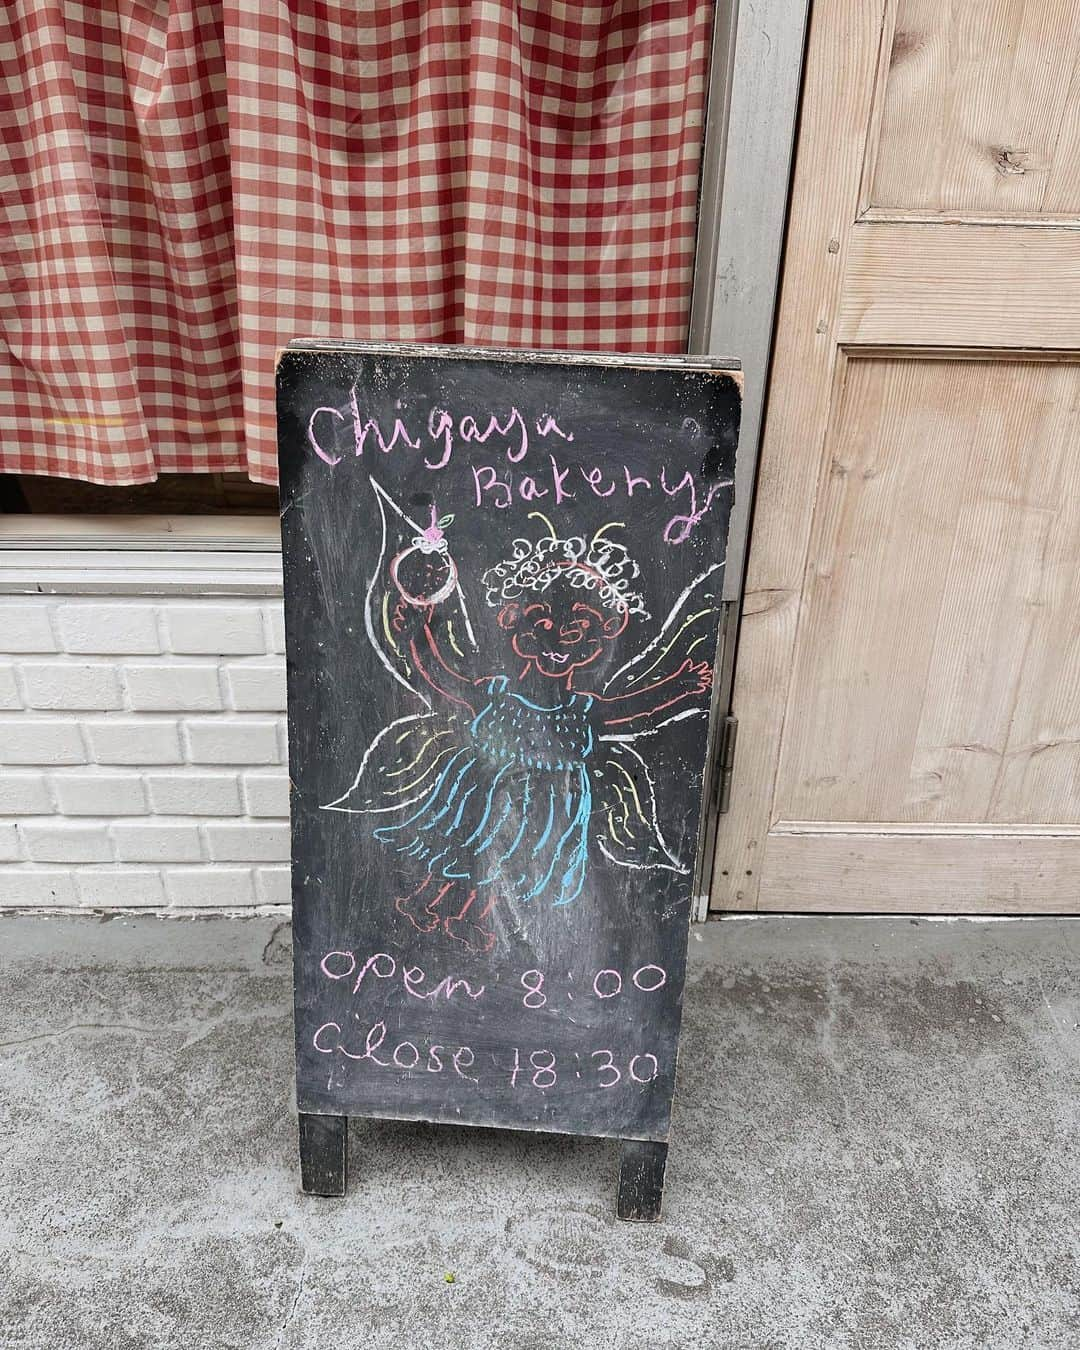 Chigaya
Bakery
open 8:00
Close 18:30